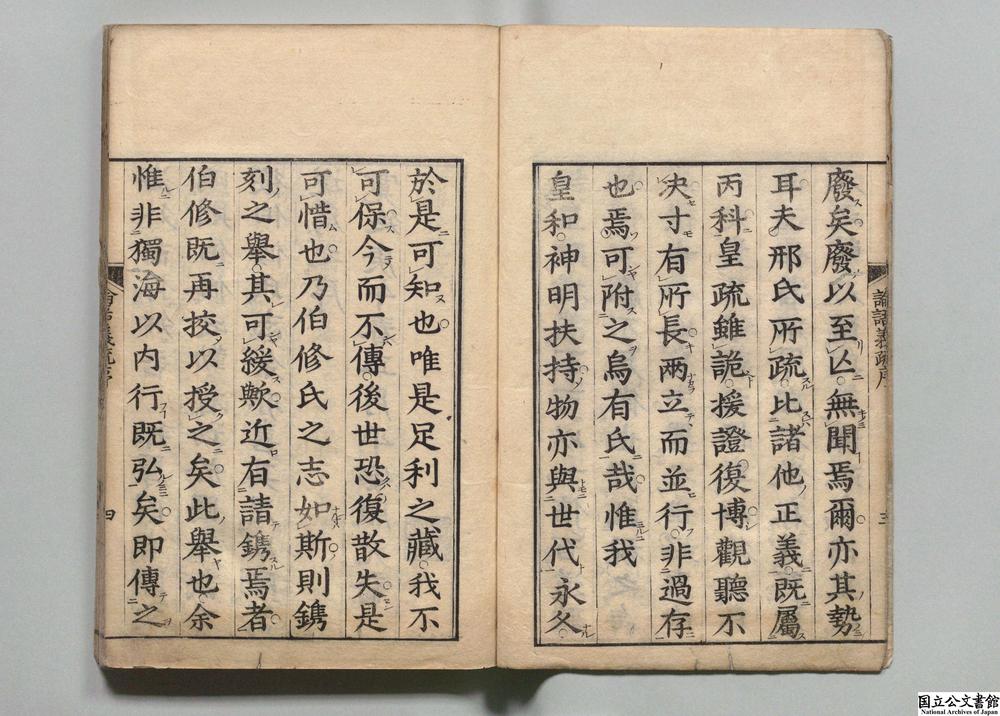 廢矣廢以至亾無聞焉爾亦其勢
耳夫邢氏所疏比諸他正義既屬
丙科皇疏雖詭援證復博觀聽不
决寸有所長兩立而並行非過存
也焉可附之烏有氏哉惟我
皇和神明扶持物亦與世代永久
論語義疏序
三
於是可知也唯是足利之藏我不
可保今而不傳後世恐復散失是
可惜也乃伯修氏之志如斯則鐫
刻之舉其可緩歟近有請鐫焉者
伯修既再挍以授之矣此舉也余
惟非獨海以内行既弘矣即傳之
四
国立公文書館
National Archives of Japan